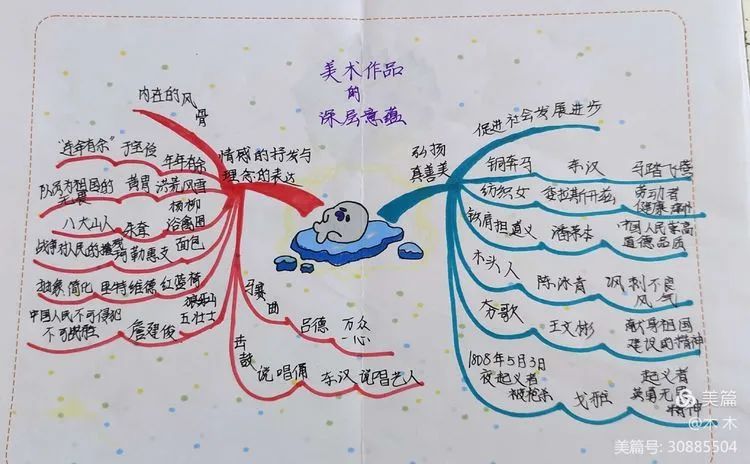 美术作品
的
深层意蕴
内在的风
骨
情感的抒发与
理念的表达
"连年有余"
年年有余
队员为祖国的
黄胄
洪荒风雪
八大山人
杨柳
浴禽图
战争对人民的
阿勒惠支
面包
抽象 简化
里特维德
红蓝椅
中国人民不可侵犯
不可战胜
詹建俊
狼牙山
五壮士
马赛
曲
吕德
万众
一心
击
鼓
说唱俑
东汉
说唱艺人
弘扬
真善美
促进社会发展进步
铜奔马
东汉
马踏飞燕
纺织女
委拉斯开兹
劳动者
健康
铁肩担道义
潘鹤
中国人民崇高
道德品质
木头人
陈冰青
讽刺不良
风气
夯歌
王文彬
献身祖国
建设的精神
1808年5月3日
夜起义者
被枪杀
戈雅
起义者
英勇无畏
精神
美篇
@木木
美篇号: 30885504